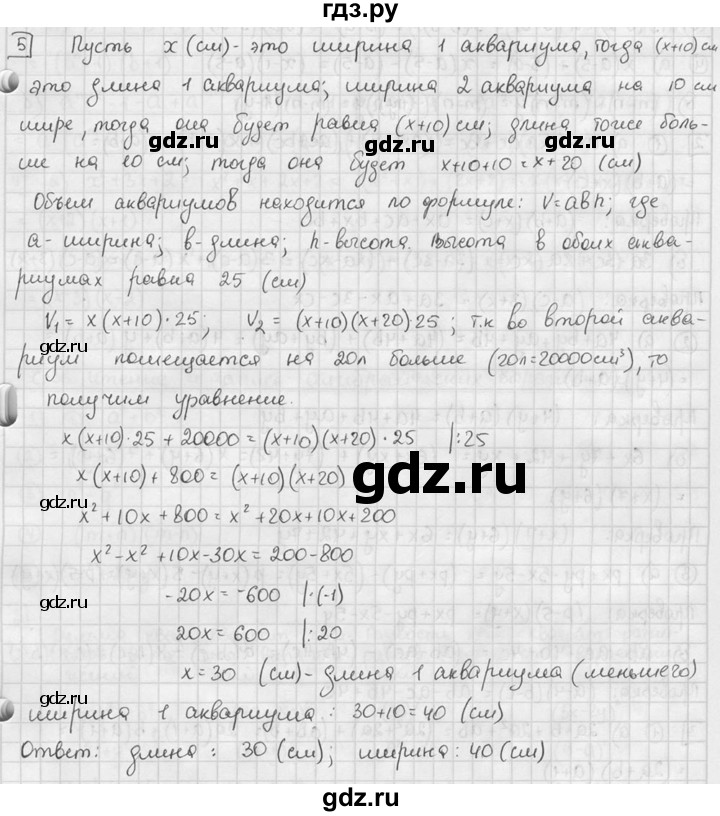 гдз.ру
5 Пусть x (см) - это ширина 1 аквариума, тогда (x+10) см
это длина 1 аквариума; ширина 2 аквариума на 10 см
шире, тогда она будет равна (x+10) см; длина тоже боль-
gdz.ru gdz.ru
ше на 10 см; тогда она будет x+10+10=x+20 (см)
Объем аквариумов находится по формуле: V=abh; где
a- ширина; в- длина; h- высота. Высота в обоих аква-
gdz.ru gdz.ru
риумах равна 25 (см)
V₁= x(x+10)·25; V₂= (x+10)(x+20)·25; т.к во второй аква-
gdz.ru gdz.ru
риум помещается на 20л больше (20л=20000см³), то
получим уравнение.
x(x+10)·25+20000=(x+10)(x+20)·25 |:25
x(x+10)+800=(x+10)(x+20)
gdz.ru
gdz.ru
x²+10x+800=x²+20x+10x+200
x²-x²+10x-30x=200-800
-20x=-600 |·(-1)
gdz.ru
20x=600 |:20
gdz.ru
x=30 (см)- длина 1 аквариума (меньшего)
gdz.ru
ширина 1 аквариума: 30+10=40 (см)
gdz.ru
Ответ: длина: 30 (см); ширина: 40 (см)
gdz.ru